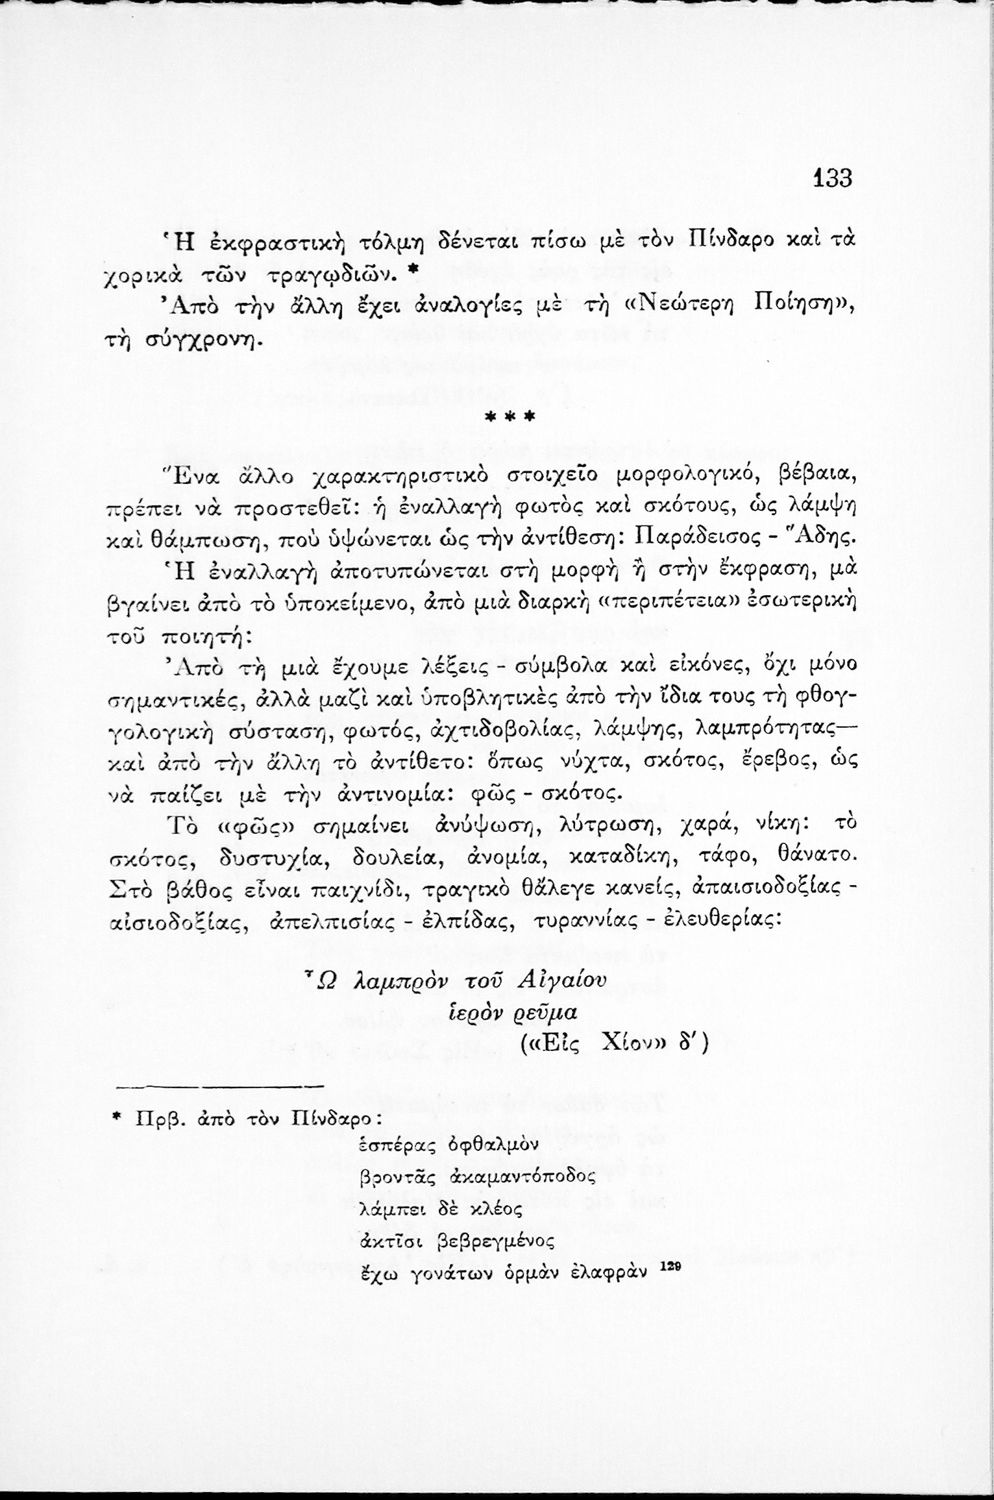 133
Ἡ ἐκφραστικὴ τόλμη δένεται πίσω μὲ τὸν Πίνδαρο καὶ τὰ
χορικὰ τῶν τραγῳδιῶν. *
Ἀπὸ τὴν ἄλλη ἔχει ἀναλογίες μὲ τὴ «Νεώτερη Ποίηση»,
τὴ σύγχρονη.
* * *
Ἕνα ἄλλο χαρακτηριστικὸ στοιχεῖο μορφολογικό, βέβαια,
πρέπει νὰ προστεθεῖ: ἡ ἐναλλαγὴ φωτὸς καὶ σκότους, ὡς λάμψη
καὶ θάμπωση, ποὺ ὑψώνεται ὡς τὴν ἀντίθεση: Παράδεισος - Ἅδης.
Ἡ ἐναλλαγὴ ἀποτυπώνεται στὴ μορφὴ ἢ στὴν ἔκφραση, μὰ
βγαίνει ἀπὸ τὸ ὑποκείμενο, ἀπὸ μιὰ διαρκὴ «περιπέτεια» ἐσωτερικὴ
τοῦ ποιητή:
Ἀπὸ τὴ μιὰ ἔχουμε λέξεις - σύμβολα καὶ εἰκόνες, ὄχι μόνο
σημαντικές, ἀλλὰ μαζὶ καὶ ὑποβλητικὲς ἀπὸ τὴν ἴδια τους τὴ φθογ-
γολογικὴ σύσταση, φωτός, ἀχτιδοβολίας, λάμψης, λαμπρότητας—
καὶ ἀπὸ τὴν ἄλλη τὸ ἀντίθετο: ὅπως νύχτα, σκότος, ἔρεβος, ὡς
νὰ παίζει μὲ τὴν ἀντινομία: φῶς - σκότος.
Τὸ «φῶς» σημαίνει ἀνύψωση, λύτρωση, χαρά, νίκη: τὸ
σκότος, δυστυχία, δουλεία, ἀνομία, καταδίκη, τάφο, θάνατο.
Στὸ βάθος εἶναι παιχνίδι, τραγικὸ θἄλεγε κανείς, ἀπαισιοδοξίας -
αἰσιοδοξίας, ἀπελπισίας - ἐλπίδας, τυραννίας - ἐλευθερίας:
Ὦ λαμπρὸν τοῦ Αἰγαίου
ἱερὸν ρεῦμα
(«Εἰς Χίον» δ')
* Πρβ. ἀπὸ τὸν Πίνδαρο:
ἑσπέρας ὀφθαλμὸν
βροντᾶς ἀκαμαντόποδος
λάμπει δὲ κλέος
ἀκτῖσι βεβρεγμένος
ἔχω γονάτων ὁρμὰν ἐλαφρὰν ¹²⁹